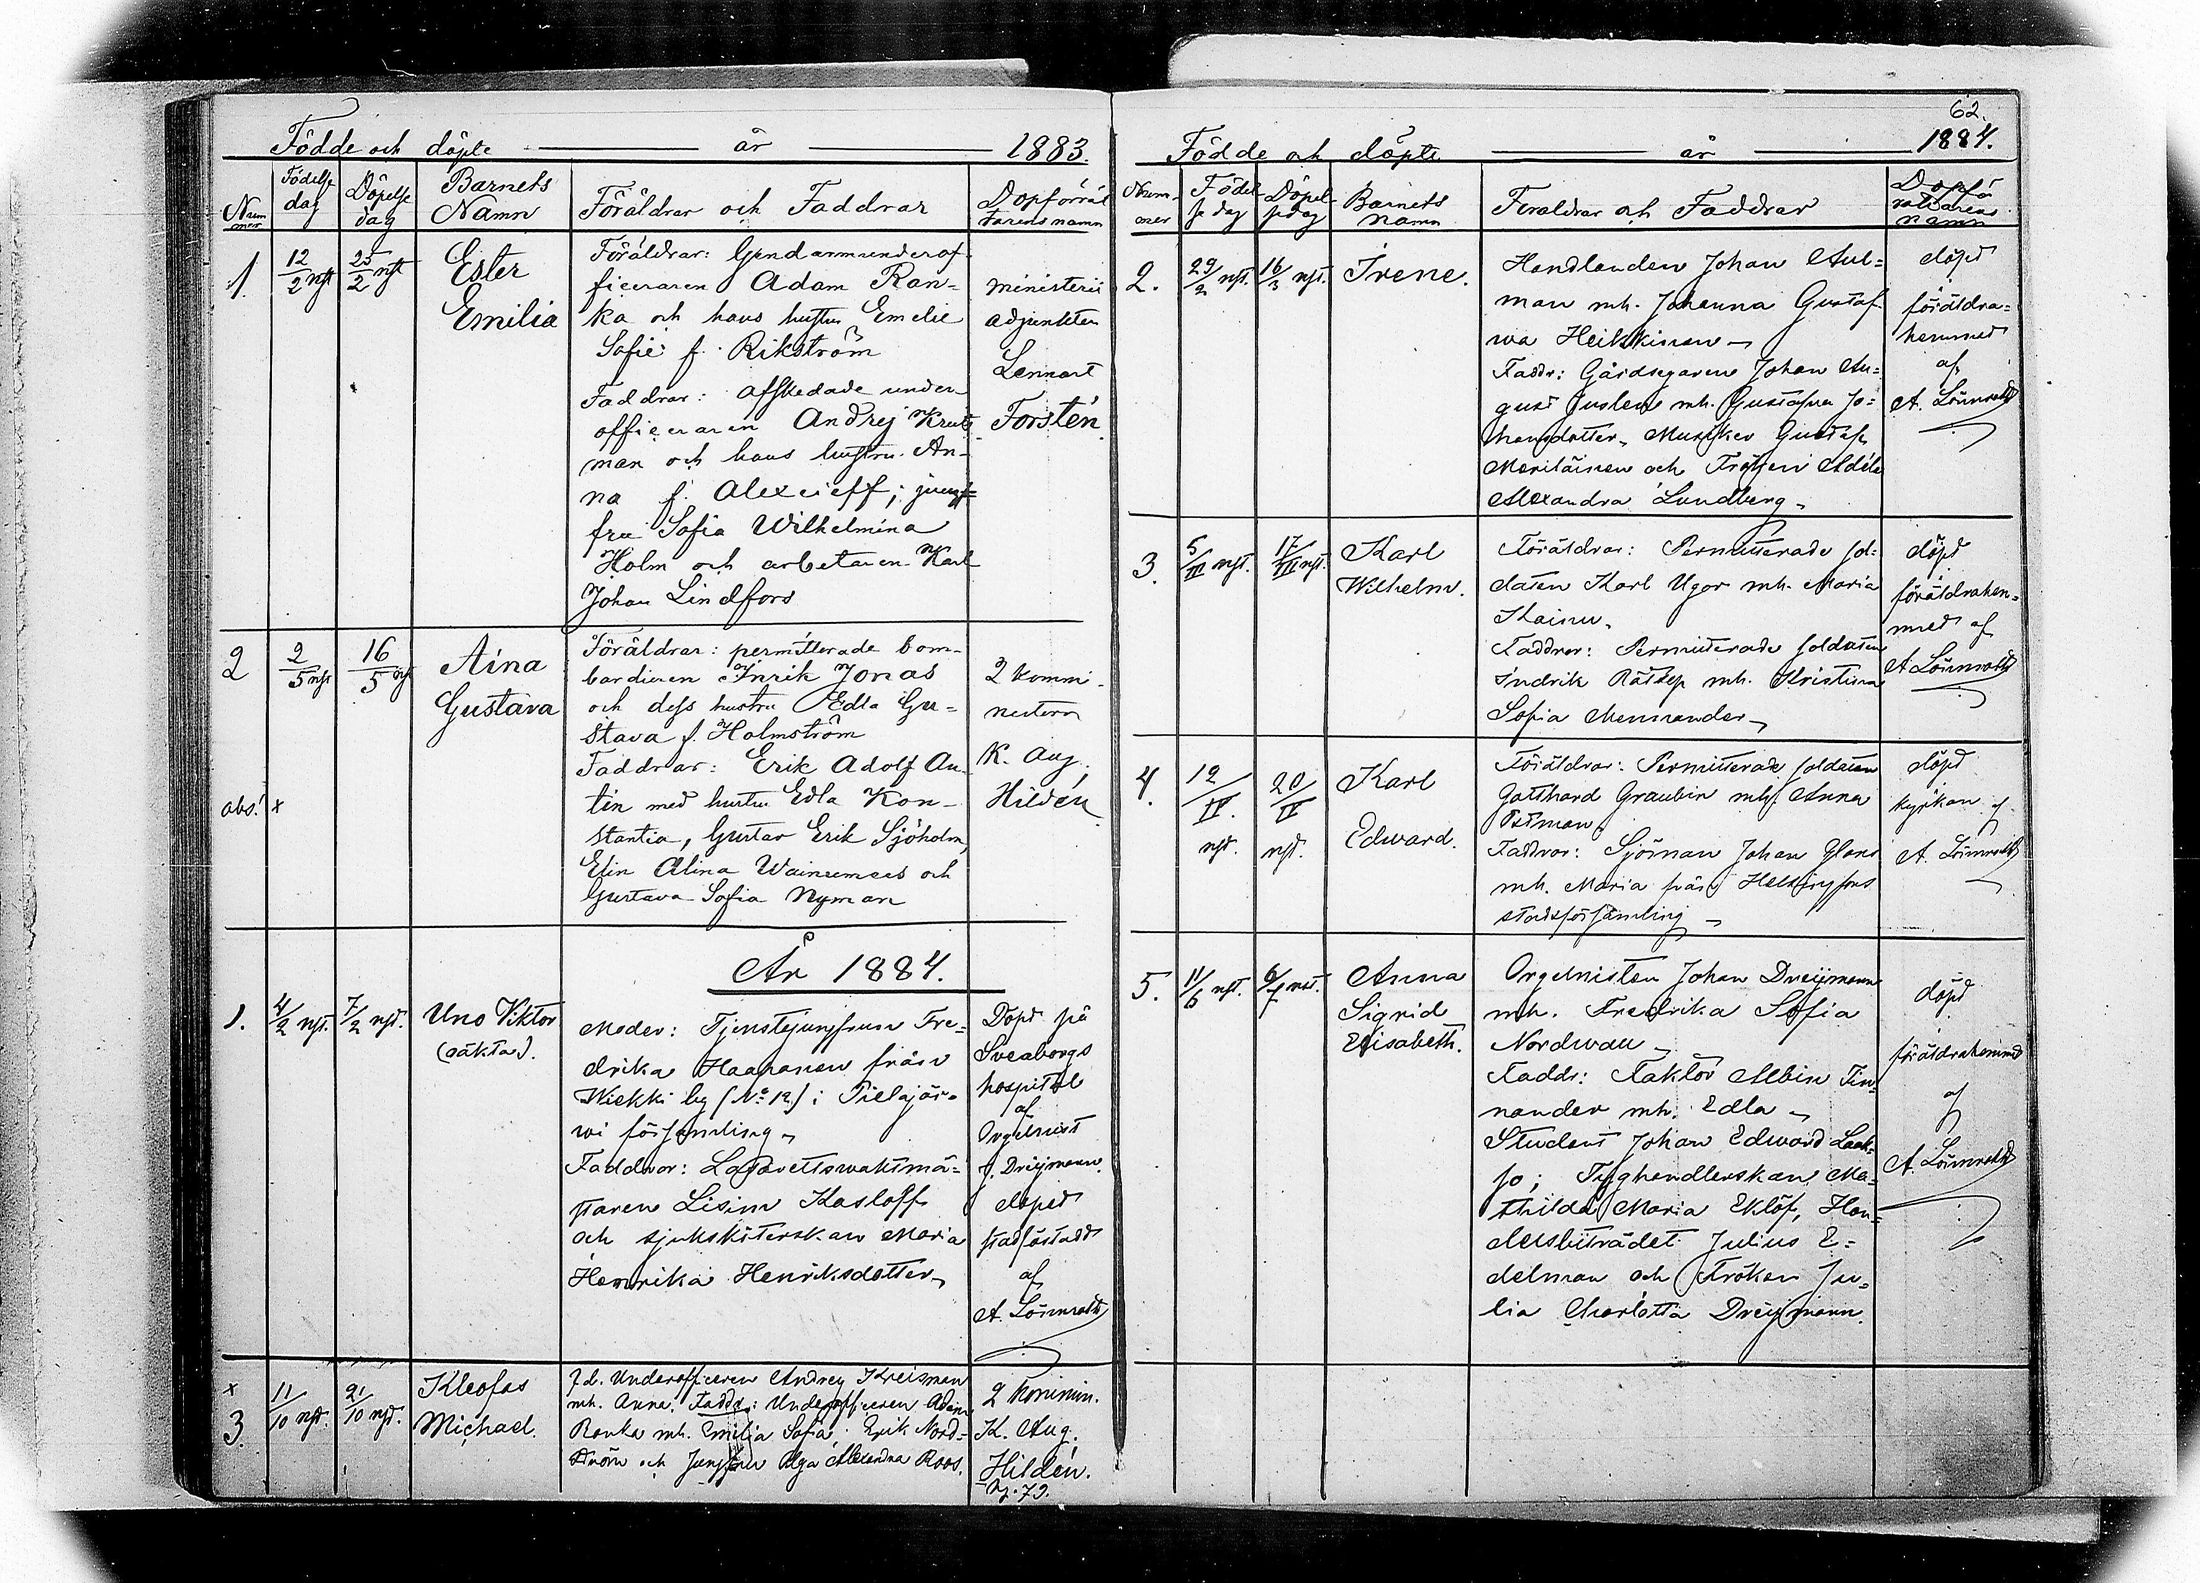 Födde och döpte år 1883.
Nummer
Födelsedag
Döpelsedag
Barnets Namn
Föräldrar och Faddrar
Dopförrättarens namn
1.
12/2 nst
25/2 nst
Ester
Emilia
Föräldrar: Gendarmunderof
ficeraren Adam Ran-
ka och hans hustru Emelie
Sofie f. Rikström
Faddrar: afskedade under-
officeraren Andrej Kreits
man och hans hustru An-
na f. Alexieff; jung-
fru Sofia Wilhelmina
Holm och arbetaren Karl
Johan Lindfors
ministerii
adjunkten
Lennart
Forstén
2
2/5 nst
16/5 nst
Aina
Gustava
obs! x
Föräldrar: permitterade bom-
bardieren Inrik Jonas
och dess hustru Edla Gu-
stava f. Holmström
Faddrar: Erik Adolf An-
tin med hustru Edla Kon-
stantia, Gustav Erik Sjöholm,
Elin Alina und
Gustava Sofia Nyman
2 kommi-
nistern
K. Aug.
Hildén
År 1884.
1.
4/2 nst.
7/2 nst.
Uno Viktor
(oäkta).
Moder: Tjenstejungfrun Fre-
drika Haapanen från
Wiekki by (No 12) i Pielajär-
wi församling
Faddrar: Lazarettswaktmä-
staren Lisim Kasloff
och sjuksköterskan Maria
Henrika Henriksdotter
Döpt på
Sveaborgs
hospital
af
Orgelnist
J. Dreijmann.
dopet
stadfästadt
af
A. Lönnroth
x
3.
11/10 nst.
21/10 nst.
Kleofas
Michael.
f.d. Underofficeren Andrey Kreisman
mh. Anna. Faddr: Underofficeren Adam
Ranka mh. Emilia Sofia; Erik Nord-
ström och Jungfru Olga Alexandra Roos.
2 kommin.
K. Aug.
Hildén.
62.
Födde och döpte år 1884.
Nummer
Födelsedag
Döpelsedag
Barnets namn
Föraldrar och Faddrar
Dopförrättarens namn
2.
29/2 nst.
16/3 nst.
Irene.
Handlanden Johan Aul-
man mh. Johanna Gustaf-
wa Heikkinen
Faddr: Gårdsegaren Johan Au-
gust Juslen mh. Gustafwa Jo-
hansdotter, Musiker Gustaf
Meriläinen och Fröken Adéle
Alexandra Lundberg
döpt
föräldra-
hemmet
af
A. Lönnroth
3.
5/III nst.
17/III nst.
Karl
Wilhelm.
Föräldrar: Permitterade sol-
daten Karl Ugor mh. Maria
Kainu.
Faddrar: Permitterade soldaten
Indrik Rätsep mh. Kristina
Sofia Mennander
döpt
föräldrahem-
met af
A. Lönnroth
4.
12/IV. nst.
20/IV nst.
Karl
Edward.
Föräldrar: Permitterade soldaten
Gotthard Graubin mh. Anna
Östman.
Faddrar: Sjöman Johan Glans
mh. Maria från Helsingfors
stadsförsamling
döpt
kyrkan af
A. Lönnroth
5.
11/6 nst.
6/7 nst.
Anna
Sigrid
Elisabeth.
Orgelnisten Johan Dreijmann
mh. Fredrika Sofia
Nordwall
Faddr: Faktor Albin Fin-
nander mh. Edla
Student Johan Edward Laak-
so; Tyghandlerskan Ma-
thilda Maria Eklöf, Han-
delsbiträdet Julius E-
delman och Fröken Ju-
lia Charlotta Dreijmann.
döpt
föräldrahemmet
af
A. Lönnroth